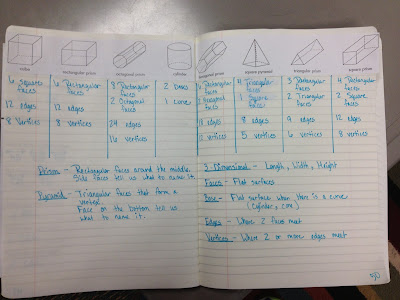 cube
rectangular prism
octagonal prism
cylinder
6 squares
faces
12 edges
8 vertices
6 Rectangular
faces
12 edges
8 vertices
8 Rectangular
faces
2 Octagonal
faces
24 edges
16 vertices
2 bases
1 curve
prism
square pyramid
triangular prism
square prism
Rectangular
faces
Hexagonal
faces
18 edges
12 vertices
4 Triangular
faces
1 Square
face
8 edges
5 vertices
3 Rectangular
faces
2 Triangular
faces
9 edges
6 vertices
4 Rectangular
faces
2 Square
faces
12 edges
8 vertices
Prism - Rectangular faces around the middle.
Side faces tell us what to name it.
Pyramid - Triangular faces that form a
Face on the bottom tell us
what to name it.
3-Dimensional - Length, Width, Height
Faces - Flat surfaces
Base - Flat surface when there is a curve
(cylinder, cone)
Edges - Where 2 faces meet
Vertices - Where 2 or more edges meet